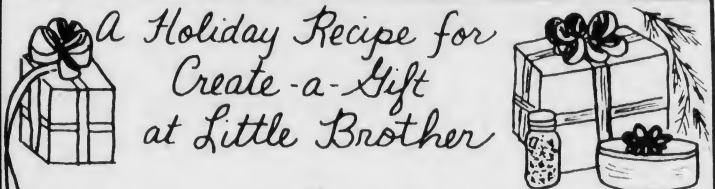 A Holiday Recipe for
Create-a-Gift
at Little Brother